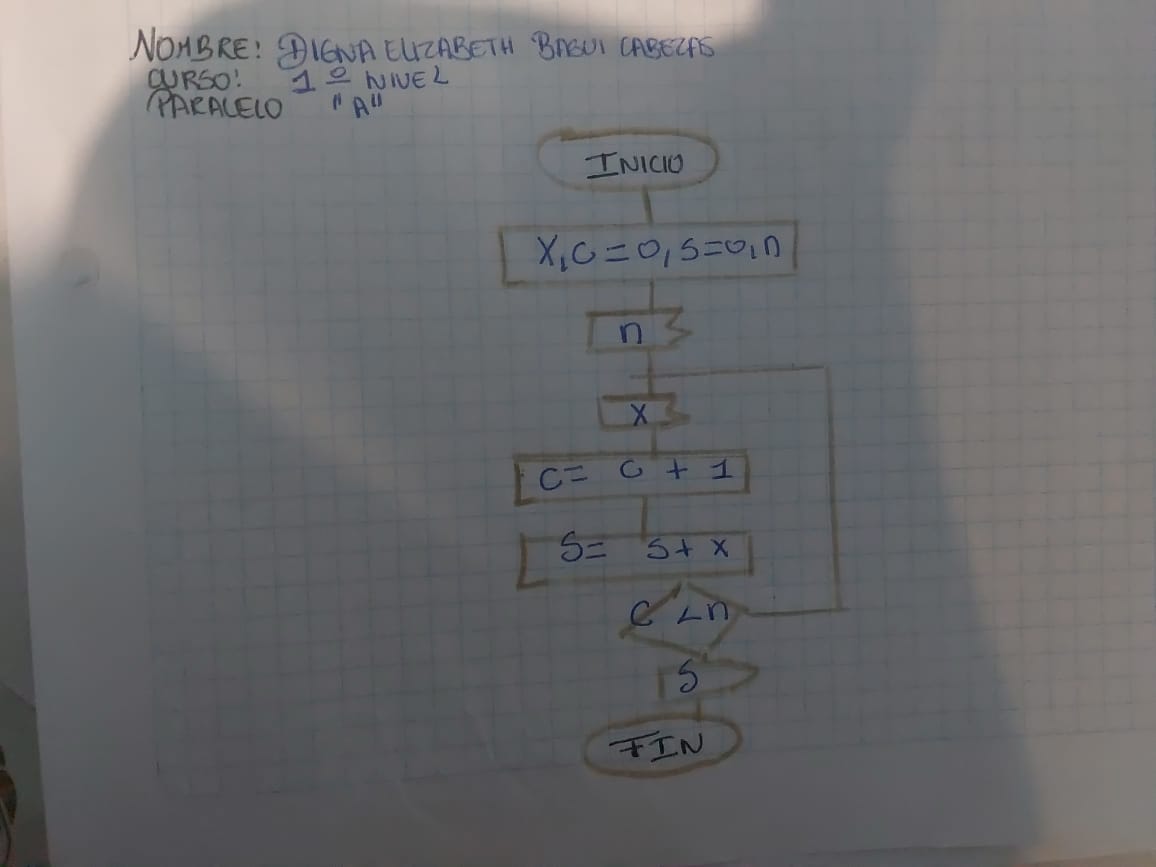 NOMBRE: DIGNA ELIZABETH BAGUI CABEZAS
CURSO: 1º NIVEL
PARALELO "A"
INICIO
X, C=0, S=0, n
n
X
C= C + 1
S= S + X
C < n
S
FIN